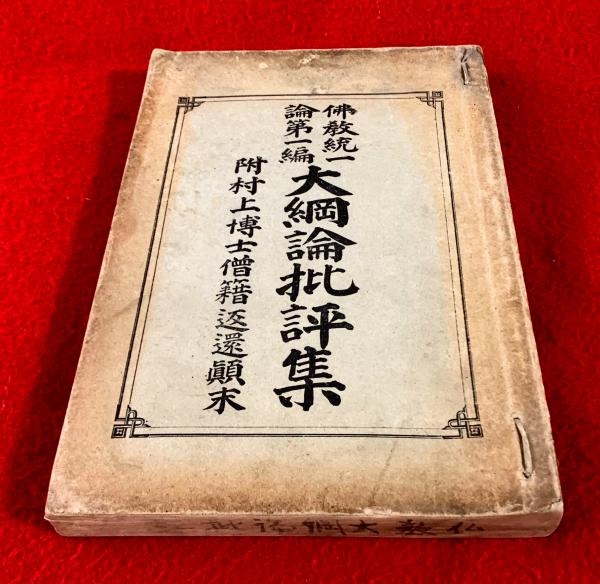 佛教統一
論第一編
大綱論批評集
附村上博士僧籍返還顚末
仏教大綱論批